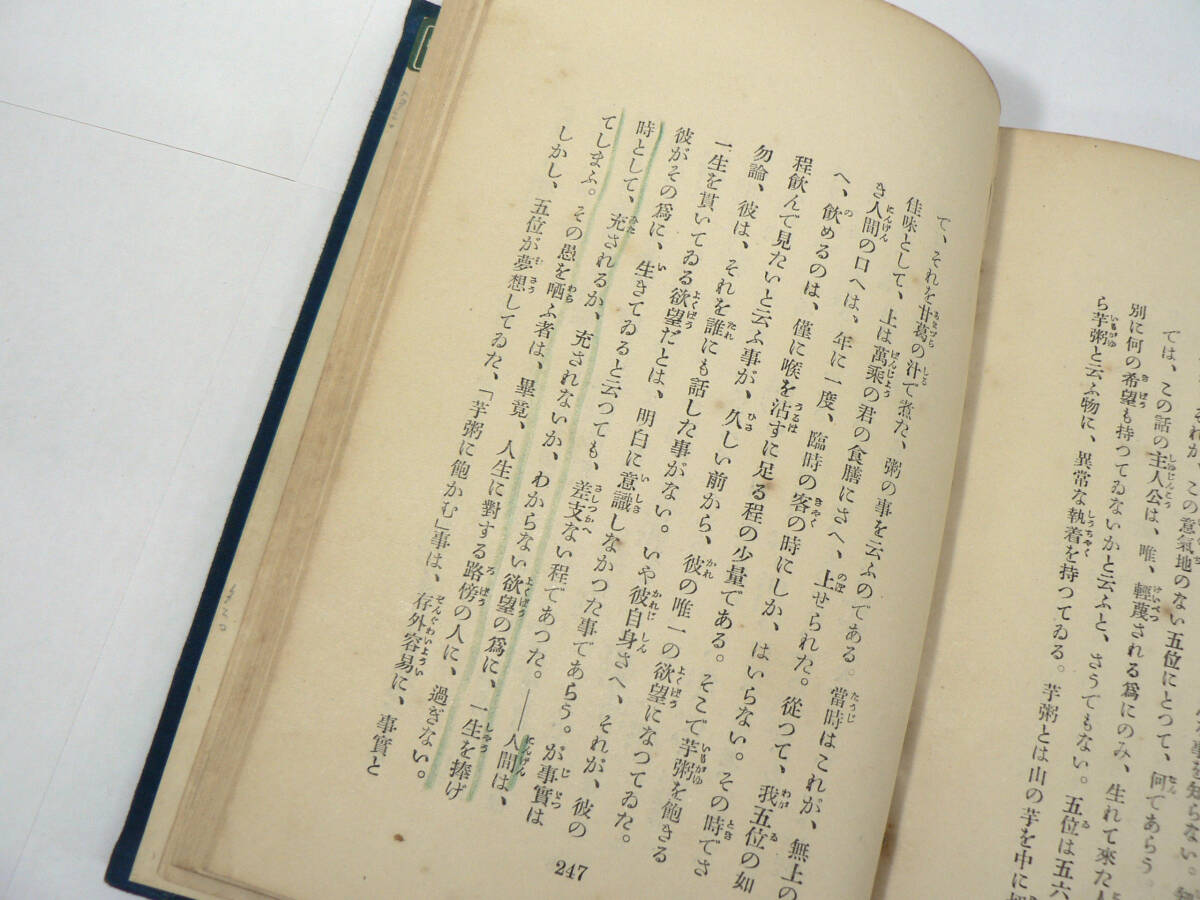 事を知らない。
この意氣地のない五位にとつて、何であらう。
では、この話の主人公は、唯、輕蔑される爲にのみ、生れて來た人
別に何の希望も持つてゐないかと云ふと、さうでもない。五位は五六
ら芋粥と云ふ物に、異常な執着を持つてゐる。芋粥とは山の芋を中に
て、それを甘葛の汁で煮た、粥の事を云ふのである。當時はこれが、無上の
佳味として、上は萬乘の君の食膳にさへ、上せられた。從つて、我五位の如
き人間の口へは、年に一度、臨時の客の時にしか、はいらない。その時でさ
へ、飮めるのは、僅に喉を沾すに足る程の少量である。そこで芋粥を飽きる
程飮んで見たいと云ふ事が、久しい前から、彼の唯一の欲望になつてゐた。
勿論、彼は、それを誰にも話した事がない。いや彼自身さへ、それが、彼の
一生を貫いてゐる欲望だとは、明白に意識しなかつた事であらう。が事實は
彼がその爲に、生きてゐると云つても、差支ない程であつた。――人間は、
時として、充されるか、充されないか、わからない欲望の爲に、一生を捧げ
てしまふ。その愚を哂ふ者は、畢竟、人生に對する路傍の人に、過ぎない。
しかし、五位が夢想してゐた、「芋粥に飽かむ」事は、存外容易に、事實と
247